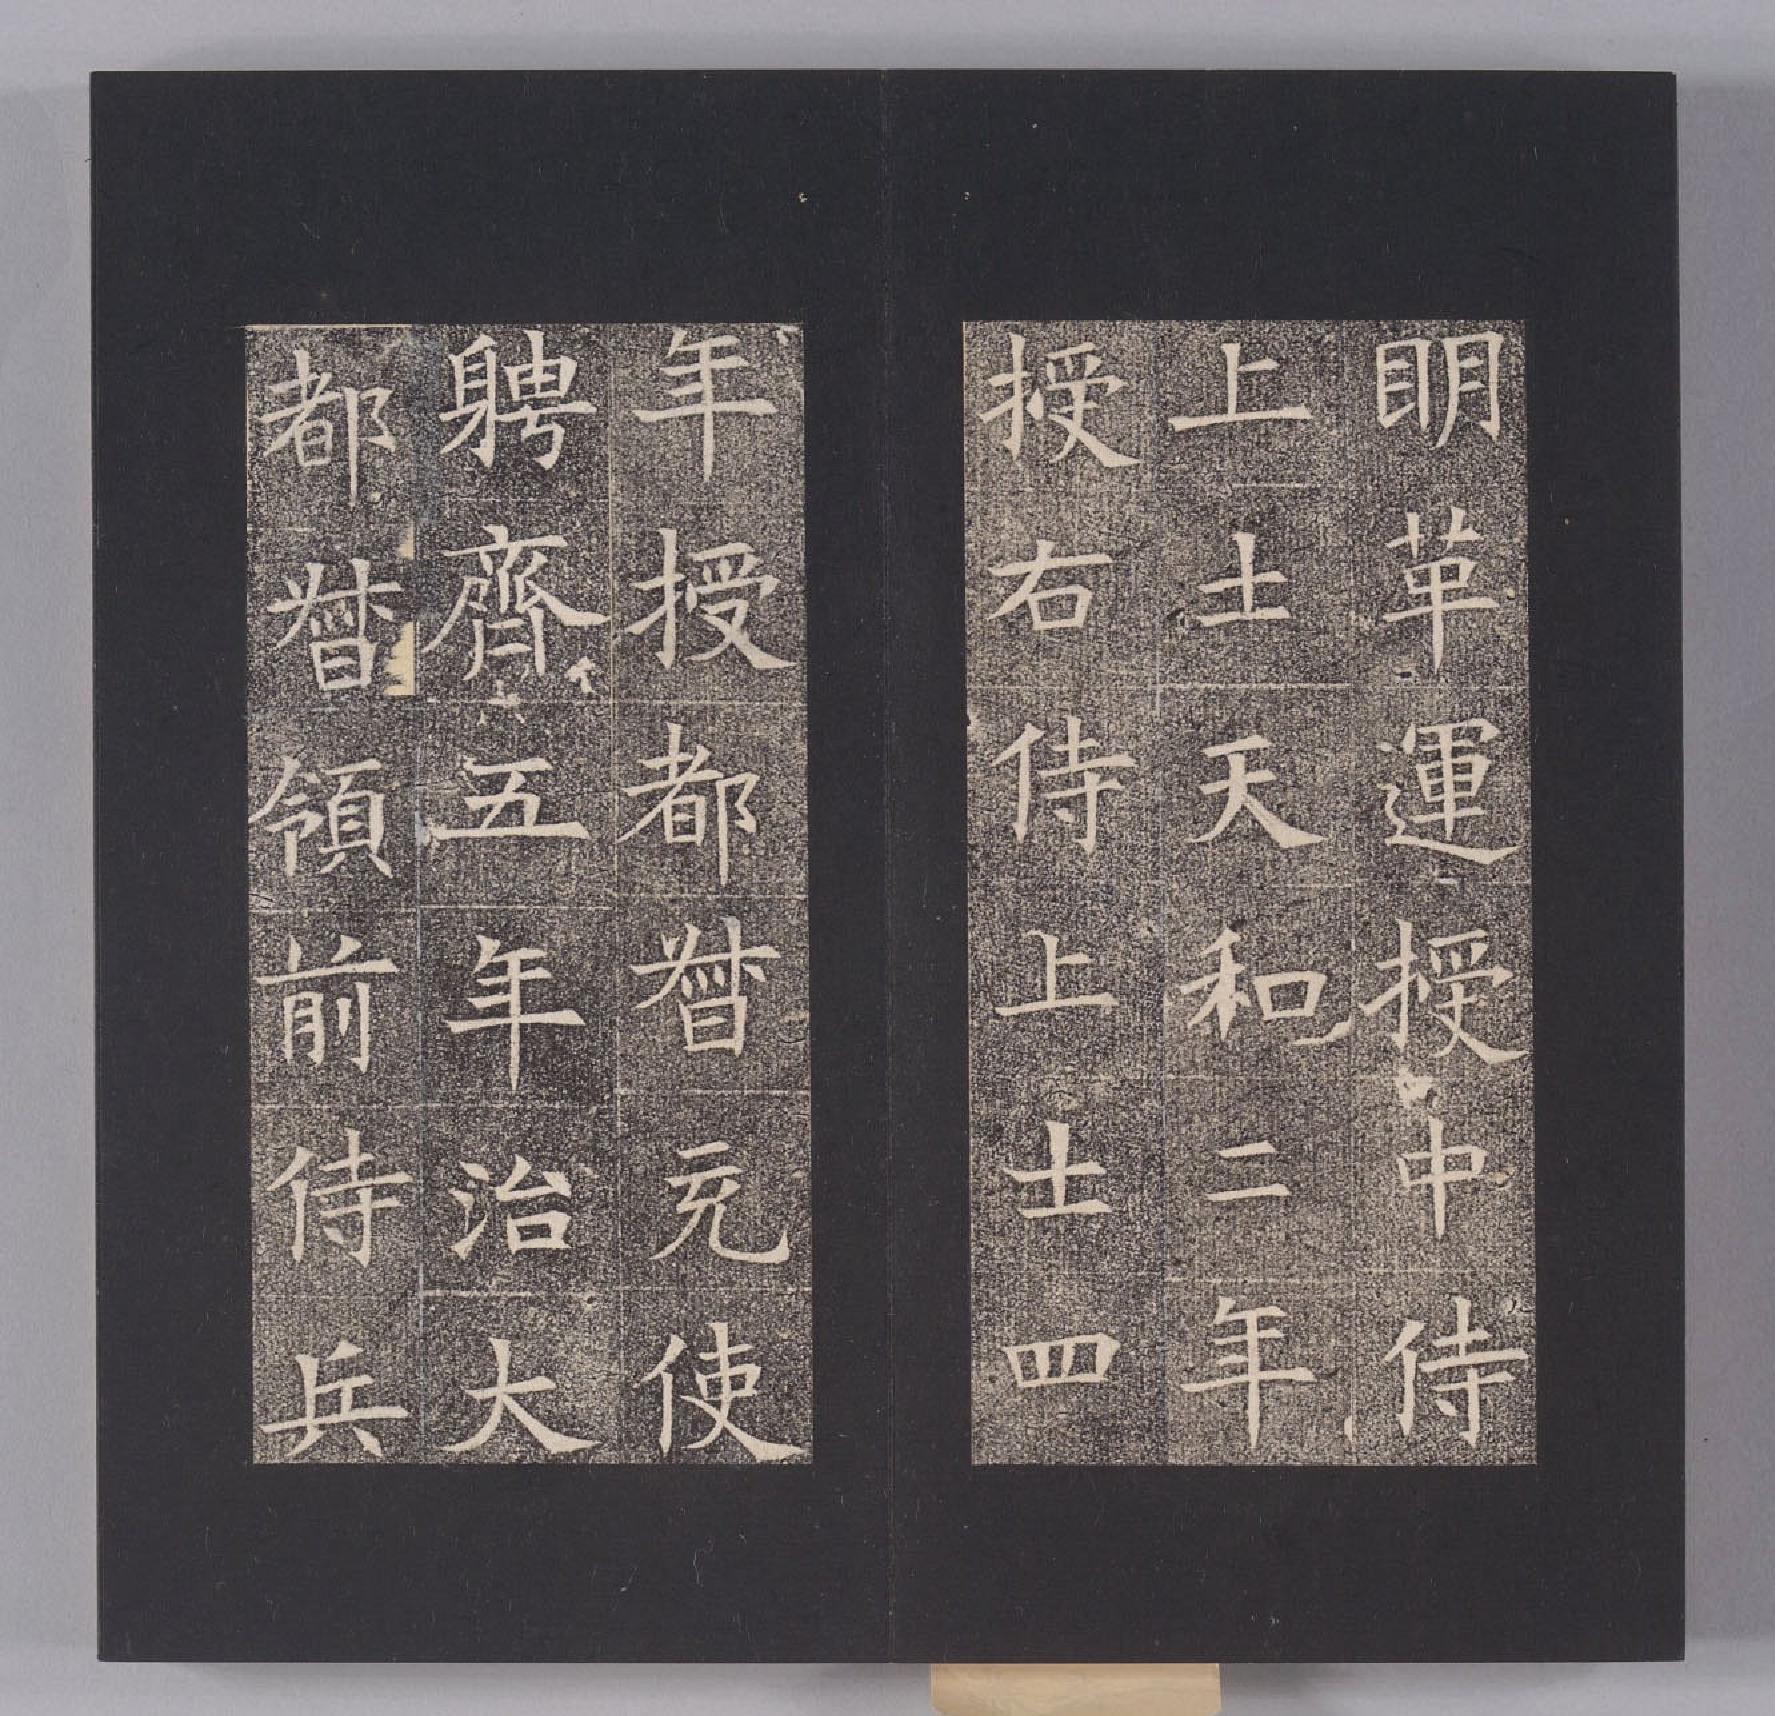 明革運授中侍
上士天和二年
授右侍上士四
年授都督充使
聘齊五年治大
都督領前侍兵